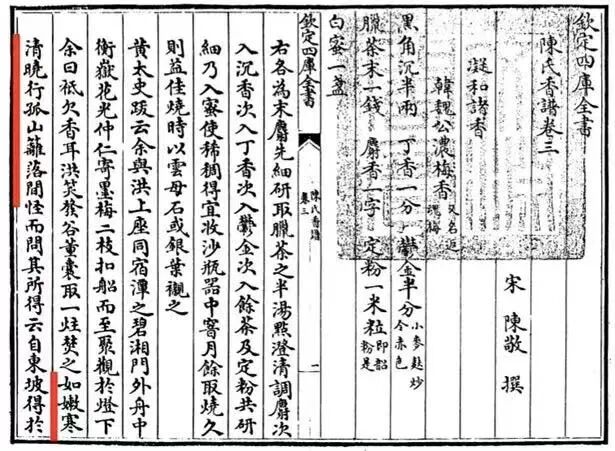 欽定四庫全書
陳氏香譜卷三
宋 陳敬 撰
凝和諸香
韓魏公濃梅香 又名返魂梅
黑角沉半兩 丁香一分 鬱金半分 小麥麩炒令赤色
臘茶末一錢 麝香一字 定粉一米粒 即韶粉是
白蜜一盞
欽定四庫全書
陳氏香譜
卷三
一
右各為末麝先細研取臘茶之半湯點澄清調麝次
入沉香次入丁香次入鬱金次入餘茶及定粉共研
細乃入蜜使稀稠得宜收沙瓶器中窨月餘取燒久
則益佳燒時以雲母石或銀葉襯之
黃太史跋云余與洪上座同宿潭之碧湘門外舟中
衡嶽花光仲仁寄墨梅二枝扣船而至聚觀於燈下
余曰祇欠香耳洪笑發谷董囊取一炷焚之如嫩寒
清曉行孤山籬落間怪而問其所得云自東坡得於